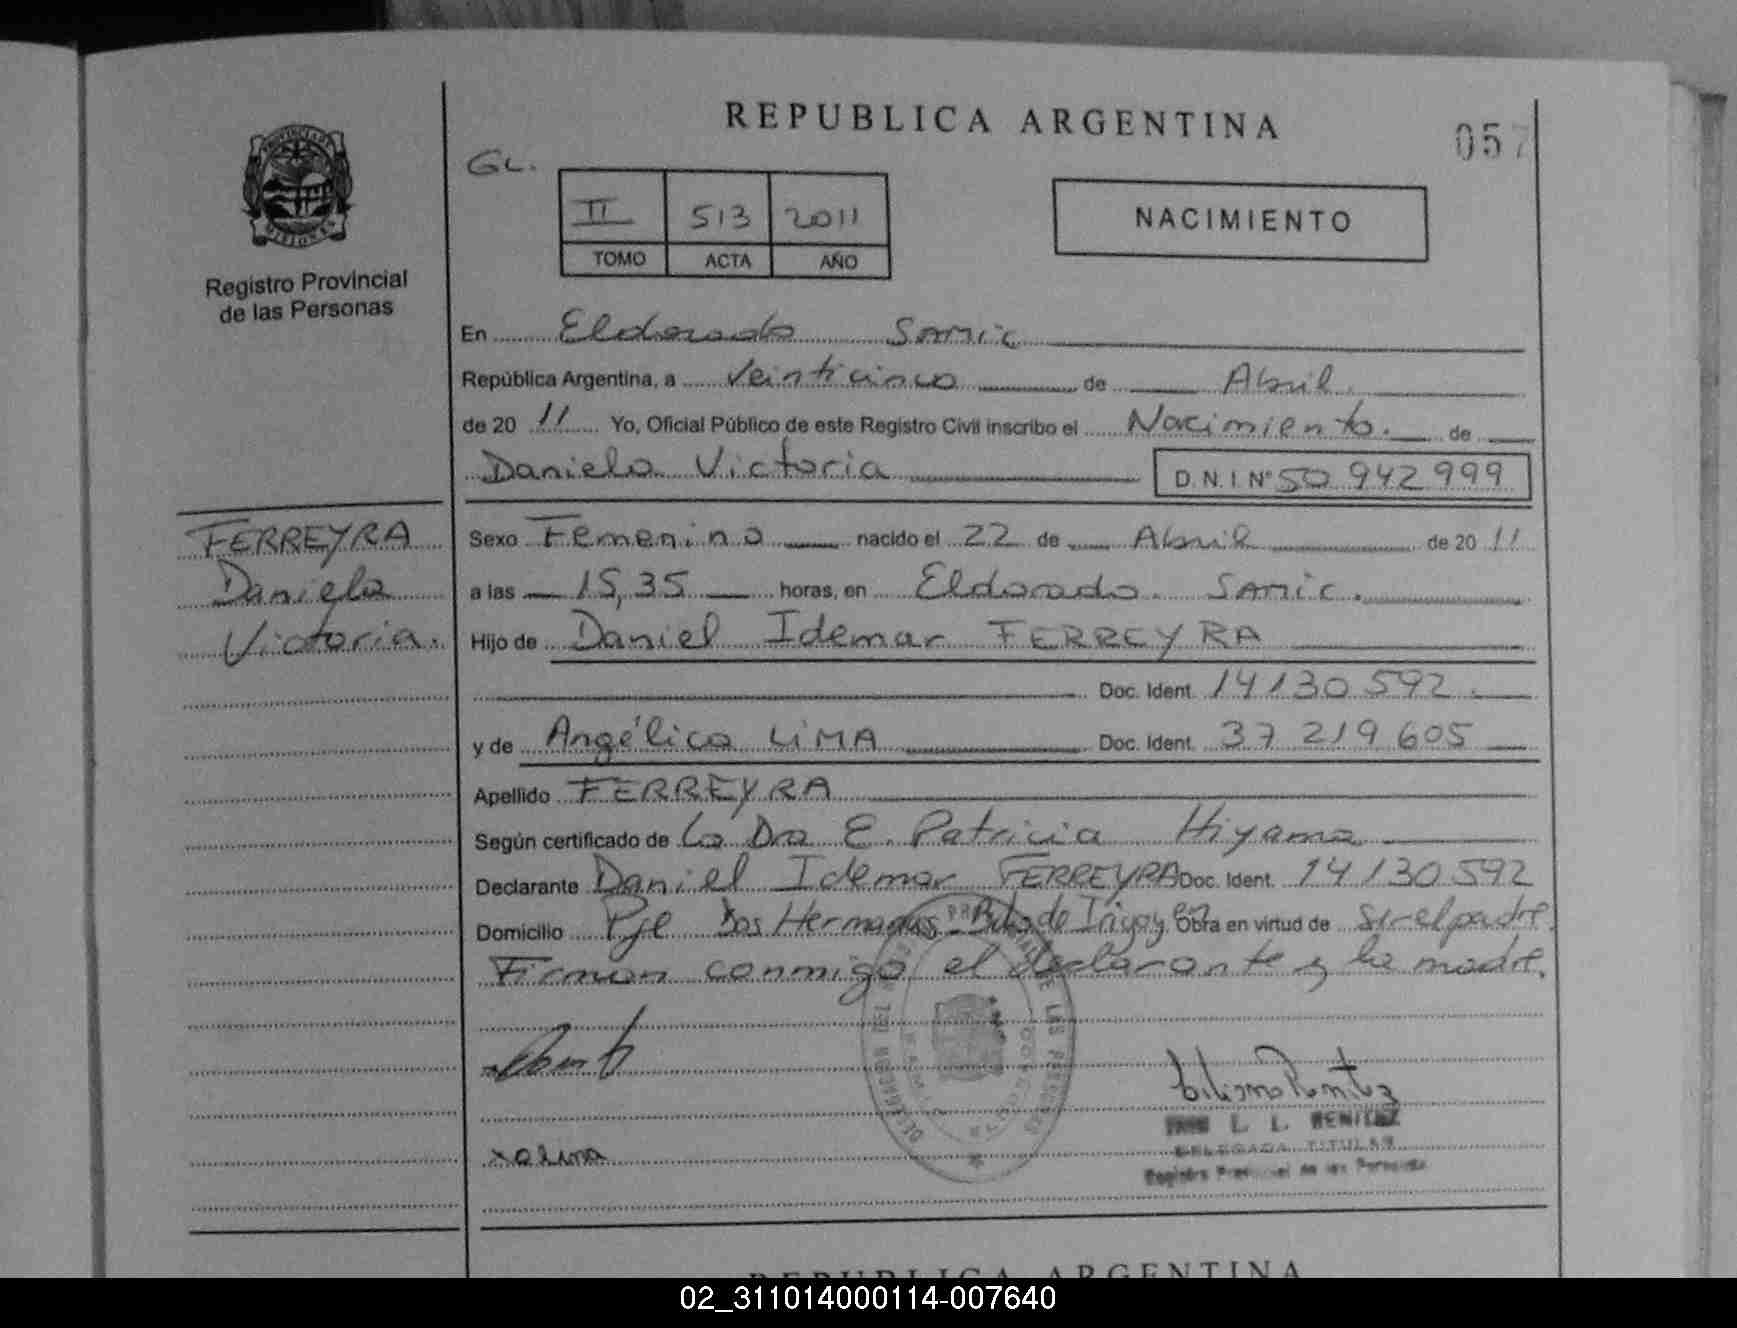 REPUBLICA ARGENTINA
057
GL.
II 513 2011
TOMO ACTA AÑO
NACIMIENTO
PROVINCIA DE MISIONES
Registro Provincial
de las Personas
En Eldorado Samic
República Argentina, a Veinticinco de Abril.
de 20 11 Yo, Oficial Público de este Registro Civil inscribo el Nacimiento. de
Daniela Victoria D.N.I. Nº 50 942 999
FERREYRA
Daniela
Victoria.
Sexo Femenino nacido el 22 de Abril de 20 11
a las 15,35 horas, en Eldorado. Samic.
Hijo de Daniel Idemar FERREYRA
Doc. Ident. 14130592.
y de Angélica LiMA Doc. Ident. 37 219 605
Apellido FERREYRA
Según certificado de La Dra E. Patricia Hiyama
Declarante Daniel Idemar FERREYRA Doc. Ident. 14130592
Domicilio Pje Dos Hermanas - Bdo de Irigoyen Obra en virtud de ser el padre.
Firman conmigo el declarante y la madre.
L. L. BENITEZ
DELEGADA TITULAR
Registro Provincial de las Personas
REPUBLICA ARGENTINA
02_311014000114-007640